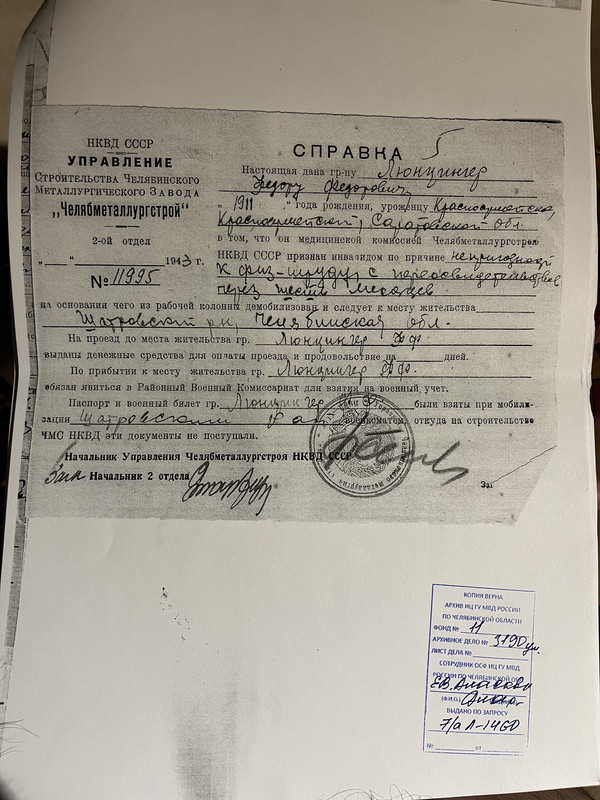 НКВД СССР
УПРАВЛЕНИЕ
Строительства Челябинского
Металлургического Завода
„Челябметаллургстрой“
2-ой отдел
„ “ 1943 г.
№ 11995
СПРАВКА
5
Настоящая дана гр-ну Люнцингер
Федору Федоровичу
„ 1911 “ года рождения, уроженцу
Саратовской обл.
в том, что он медицинской комиссией Челябметаллургстроя
НКВД СССР признан инвалидом по причине непригодност
к физ-труду с переосвидетельствов
через шесть месяцев
на основании чего из рабочей колонны демобилизован и следует к месту жительства
Шатровский рн, Челябинская обл.
На проезд до места жительства гр. Люнцингер Ф.Ф.
выданы денежные средства для оплаты проезда и продовольствие на дней.
По прибытии к месту жительства гр. Люнцингер Ф.Ф.
обязан явиться в Районный Военный Комиссариат для взятия на военный учет.
Паспорт и военный билет гр. Люнцингер были взяты при мобили-
зации Шатровский военкоматом, откуда на строительство
ЧМС НКВД эти документы не поступали.
Начальник Управления Челябметаллургстроя НКВД СССР
Зам Начальник 2 отдела
Заг
КОПИЯ ВЕРНА
АРХИВ ИЦ ГУ МВД РОССИИ
ПО ЧЕЛЯБИНСКОЙ ОБЛАСТИ
ФОНД № 11
АРХИВНОЕ ДЕЛО № 3190
ЛИСТ ДЕЛА №
СОТРУДНИК ОСФ ИЦ ГУ МВД
РОССИИ ПО ЧЕЛЯБИНСКОЙ ОБЛ
(Ф.И.О.)
ВЫДАНО ПО ЗАПРОСУ
7/а Л-1460
№ от